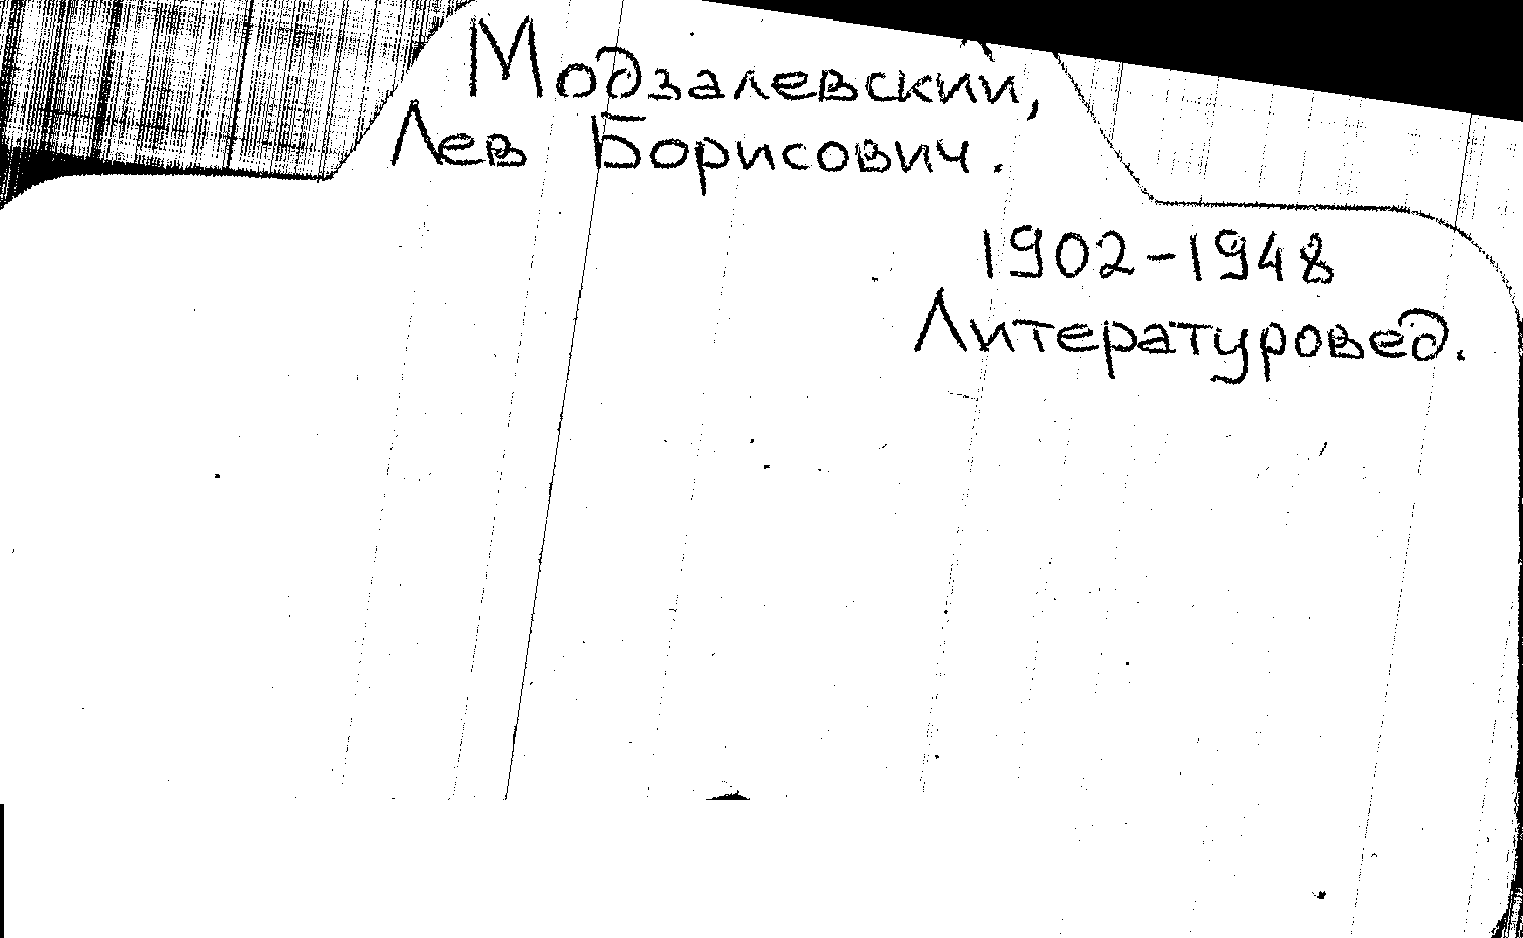 Модзалевский,
Лев Борисович.
1902-1948
Литературовед.